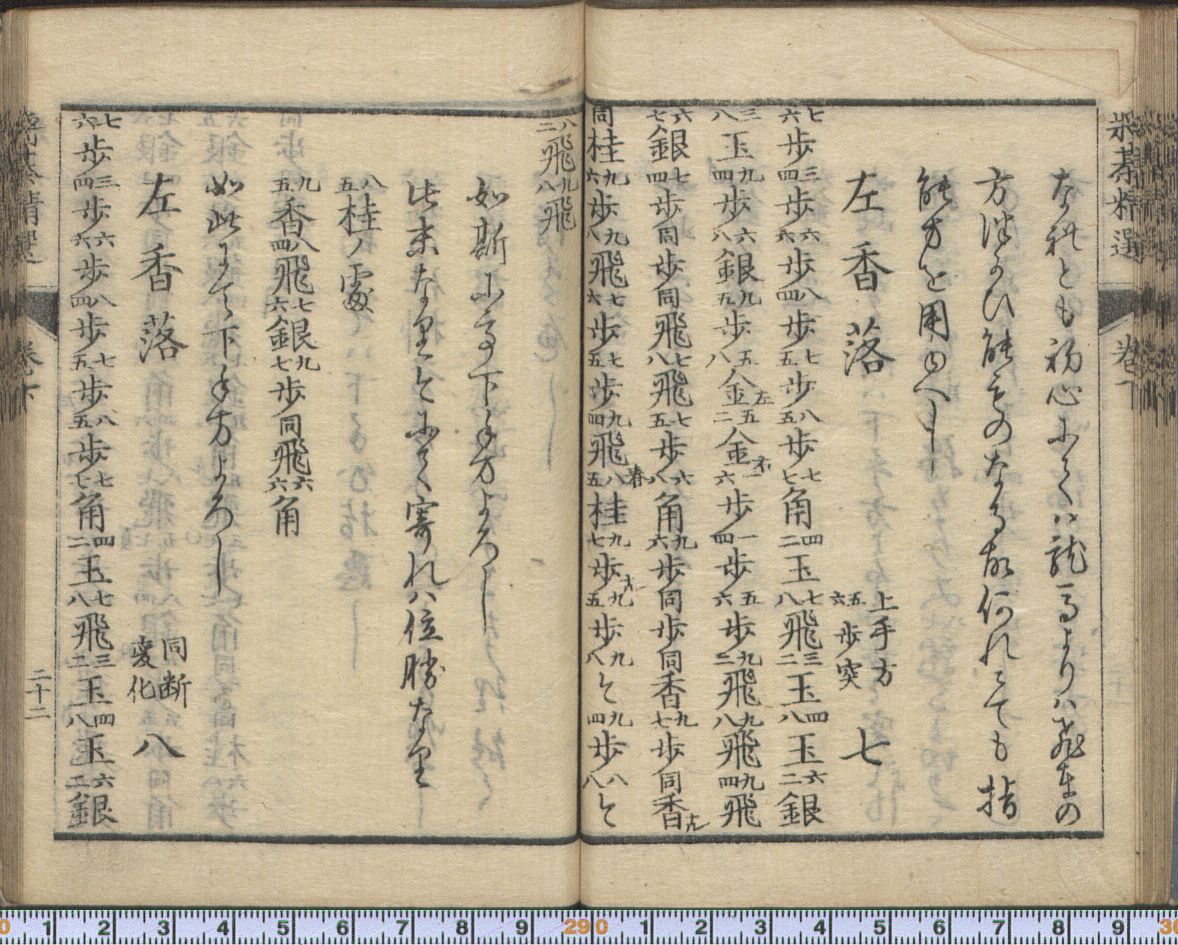 将棊精選 巻下
なれとも初心ニてハ龍馬よりハ飛車の
方つかひ能ものなる故何れニても指
能方を用ゆへし
左香落 上手方五六歩突 七
七六歩三四歩六六歩八四歩七五歩八五歩七七角四二玉七八飛三二玉四八玉六二銀
三八玉九四歩六八銀九五歩五八金左五二金右一六歩一四歩五六歩九二飛九八飛九四飛
六七銀七四歩同歩同飛七八飛七五歩六八角九六歩同歩同香九七歩同香成
同桂九六歩九八飛七六歩七五歩九四飛八五桂九七歩九五歩九八と九四歩八八と
八二飛九八飛
如斯ニて下手方よろし
此末なりとニて寄れハ位勝なり
八五桂ノ處
九五香八四飛七六銀九七歩同飛六六角
如此ニて下手方よろし
左香落 同断変化 八
七六歩三四歩六六歩八四歩七五歩八五歩七七角四二玉七八飛三二玉四八玉六二銀
将棊精選 巻下 二十二